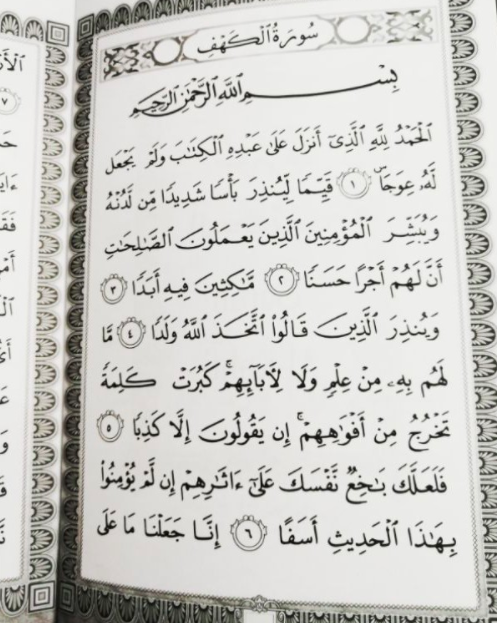 سُورَةُ الْكَهْفِ
بِسْمِ اللَّهِ الرَّحْمَٰنِ الرَّحِيمِ
الْحَمْدُ لِلَّهِ الَّذِىٓ أَنزَلَ عَلَىٰ عَبْدِهِ الْكِتَٰبَ وَلَمْ يَجْعَل
لَّهُۥ عِوَجَاۜ ١ قَيِّمًا لِّيُنذِرَ بَأْسًا شَدِيدًا مِّن لَّدُنْهُ
وَيُبَشِّرَ الْمُؤْمِنِينَ الَّذِينَ يَعْمَلُونَ الصَّٰلِحَٰتِ
أَنَّ لَهُمْ أَجْرًا حَسَنًا ٢ مَّٰكِثِينَ فِيهِ أَبَدًا ٣
وَيُنذِرَ الَّذِينَ قَالُوا۟ اتَّخَذَ اللَّهُ وَلَدًا ٤ مَّا
لَهُم بِهِۦ مِنْ عِلْمٍ وَلَا لِءَابَآئِهِمْ ۚ كَبُرَتْ كَلِمَةً
تَخْرُجُ مِنْ أَفْوَٰهِهِمْ ۚ إِن يَقُولُونَ إِلَّا كَذِبًا ٥
فَلَعَلَّكَ بَٰخِعٌ نَّفْسَكَ عَلَىٰٓ ءَاثَٰرِهِمْ إِن لَّمْ يُؤْمِنُوا۟
بِهَٰذَا الْحَدِيثِ أَسَفًا ٦ إِنَّا جَعَلْنَا مَا عَلَى